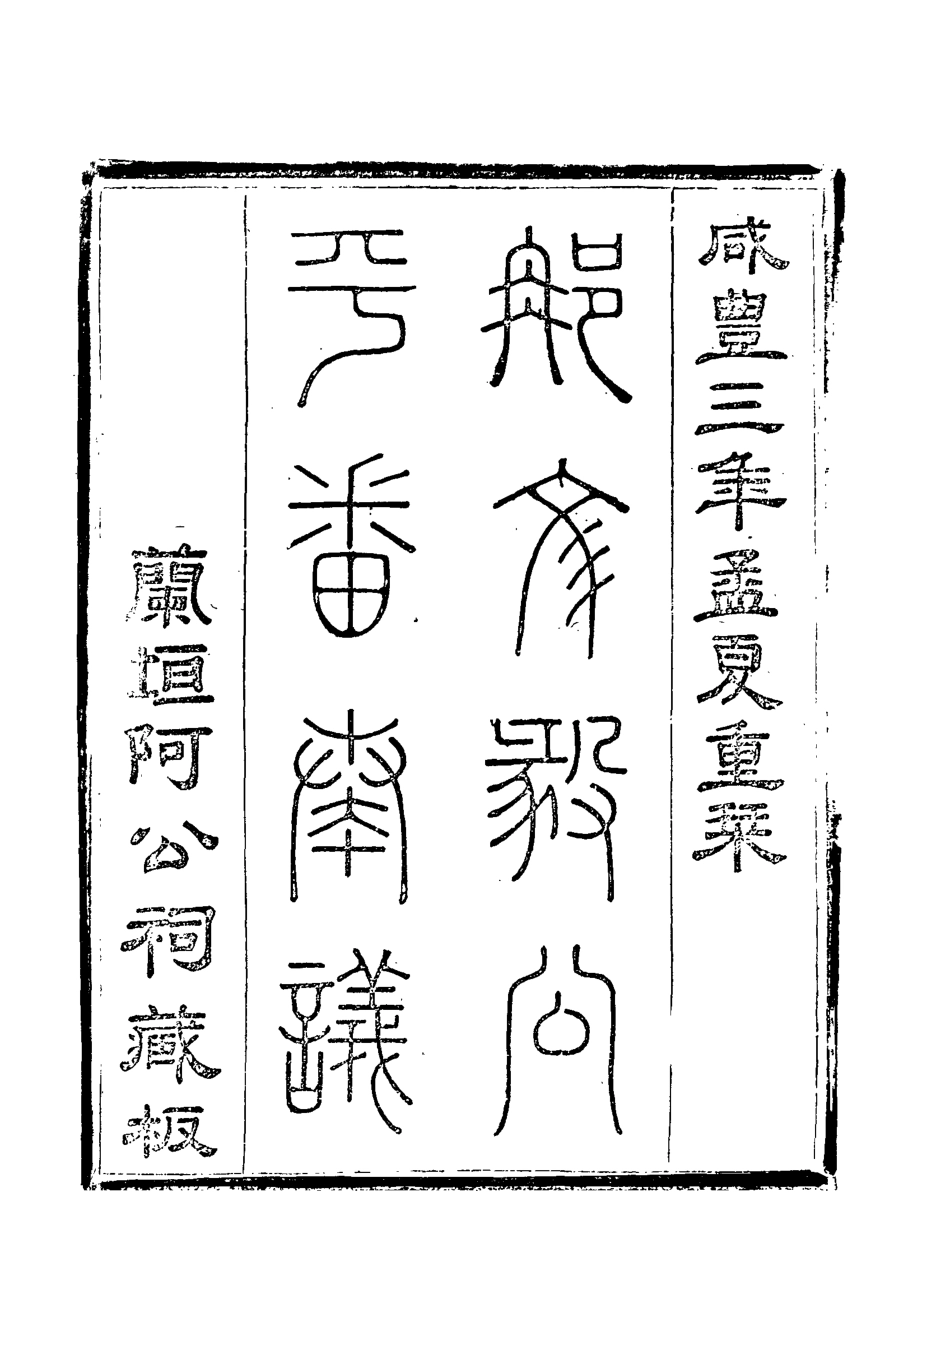 咸豐三年孟夏重栞
那文毅公
平番奏議
蘭垣阿公祠藏板